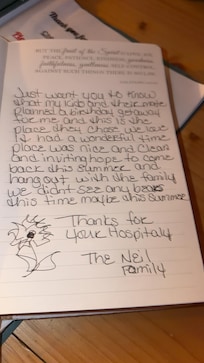 BUT THE fruit of the Spirit IS LOVE, JOY,
PEACE, PATIENCE, KINDNESS, goodness,
faithfulness, gentleness, SELF-CONTROL.
AGAINST SUCH THINGS THERE IS NO LAW.
Just want you to know
what my kids and their mate
planned a birthday getaway
for me and this is the
place they chose we have
had a wonderful time
Place was nice and clean
and inviting hope to come
back this summer and
hang out with the family
we didnt see any bears
this time maybe this Summer
Thanks for
your Hospitaly
The Neil
Family